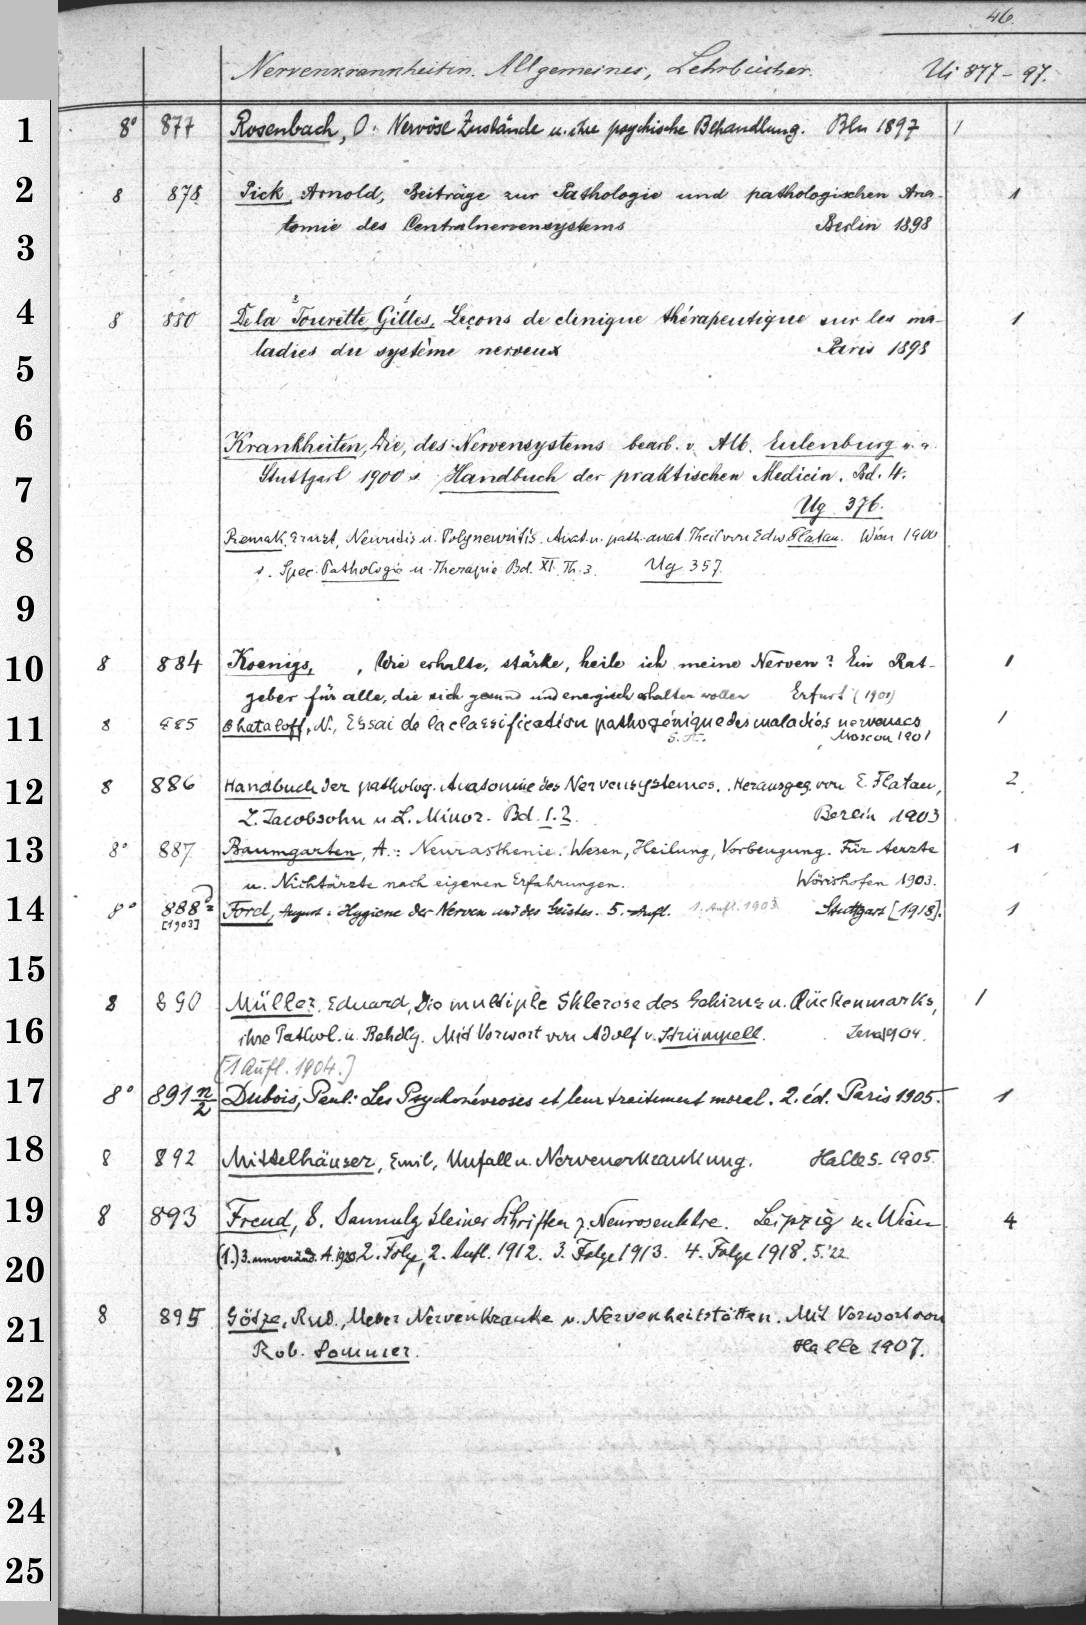 46.
Nervenkrankheiten. Allgemeines, Lehrbücher. Ui 877-97.
1 8° 877 Rosenbach, O: Nervöse Zustände u. ihre psychische Behandlung. Bln 1897 1
2 8 878 Pick, Arnold, Beiträge zur Pathologie und pathologischen Ana- 1
tomie des Centralnervensystems Berlin 1898
3
4 8 880 De la Tourette, Gilles, Leçons de clinique thérapeutique sur les ma- 1
ladies du système nerveux Paris 1898
5
6 Krankheiten, Die, des Nervensystems bearb. v. Alb. Eulenburg u. a.
7 Stuttgart 1900 s. Handbuch der praktischen Medicin. Bd. 4.
Ug 376.
8 Remak, Ernst, Neuritis u. Polyneuritis. Anat. u. path. anat. Theil von Edw Flatau. Wien 1900
s. Spec. Pathologie u. Therapie Bd. XI. Th. 3. Ug 357.
9
10 8 884 Koenigs, , Wie erhalte, stärke, heile ich meine Nerven? Ein Rat- 1
geber für alle, die sich gesund und energisch erhalten wollen Erfurt (1901)
11 8 885 Chataloff, N., Essai de la classification pathogénique des maladies nerveuses 1
S.A. Moscou 1901
12 8 886 Handbuch der patholog. Anatomie des Nervensystemes. Herausgeg. von E. Flatau, 2
L. Jacobsohn u. L. Minor. Bd. 1. 2. Berlin 1903
13 8° 887 Baumgarten, A.: Neurasthenie. Wesen, Heilung, Vorbeugung. Für Aerzte 1
u. Nichtärzte nach eigenen Erfahrungen. Wörishofen 1903.
14 8° 888 Forel, August: Hygiene der Nerven und des Geistes. 5. Aufl. 1. Aufl. 1903. Stuttgart [1918]. 1
[1903]
15
8 890 Müller, Eduard, Die multiple Sklerose des Gehirns u. Rückenmarks, 1
16 ihre Pathol. u. Behdlg. Mit Vorwort von Adolf v. Strümpell. Jena 1904.
[1 Aufl. 1904.]
17 8° 891 n/2 Dubois, Paul: Les Psychonévroses et leur traitement moral. 2. éd. Paris 1905. 1
18 8 892 Mittelhäuser, Emil, Unfall u. Nervenerkrankung. Halle S. 1905.
19 8 893 Freud, S. Sammlg kleiner Schriften z. Neurosenlehre. Leipzig u. Wien 4
20 (1.) 3. unveränd. A. 1920 2. Folge, 2. Aufl. 1912. 3. Folge 1913. 4. Folge 1918. 5. '22
21 8 895 Götze, Rud., Ueber Nervenkranke u. Nervenheilstätten. Mit Vorwort von
Rob. Sommer. Halle 1907.
22
23
24
25